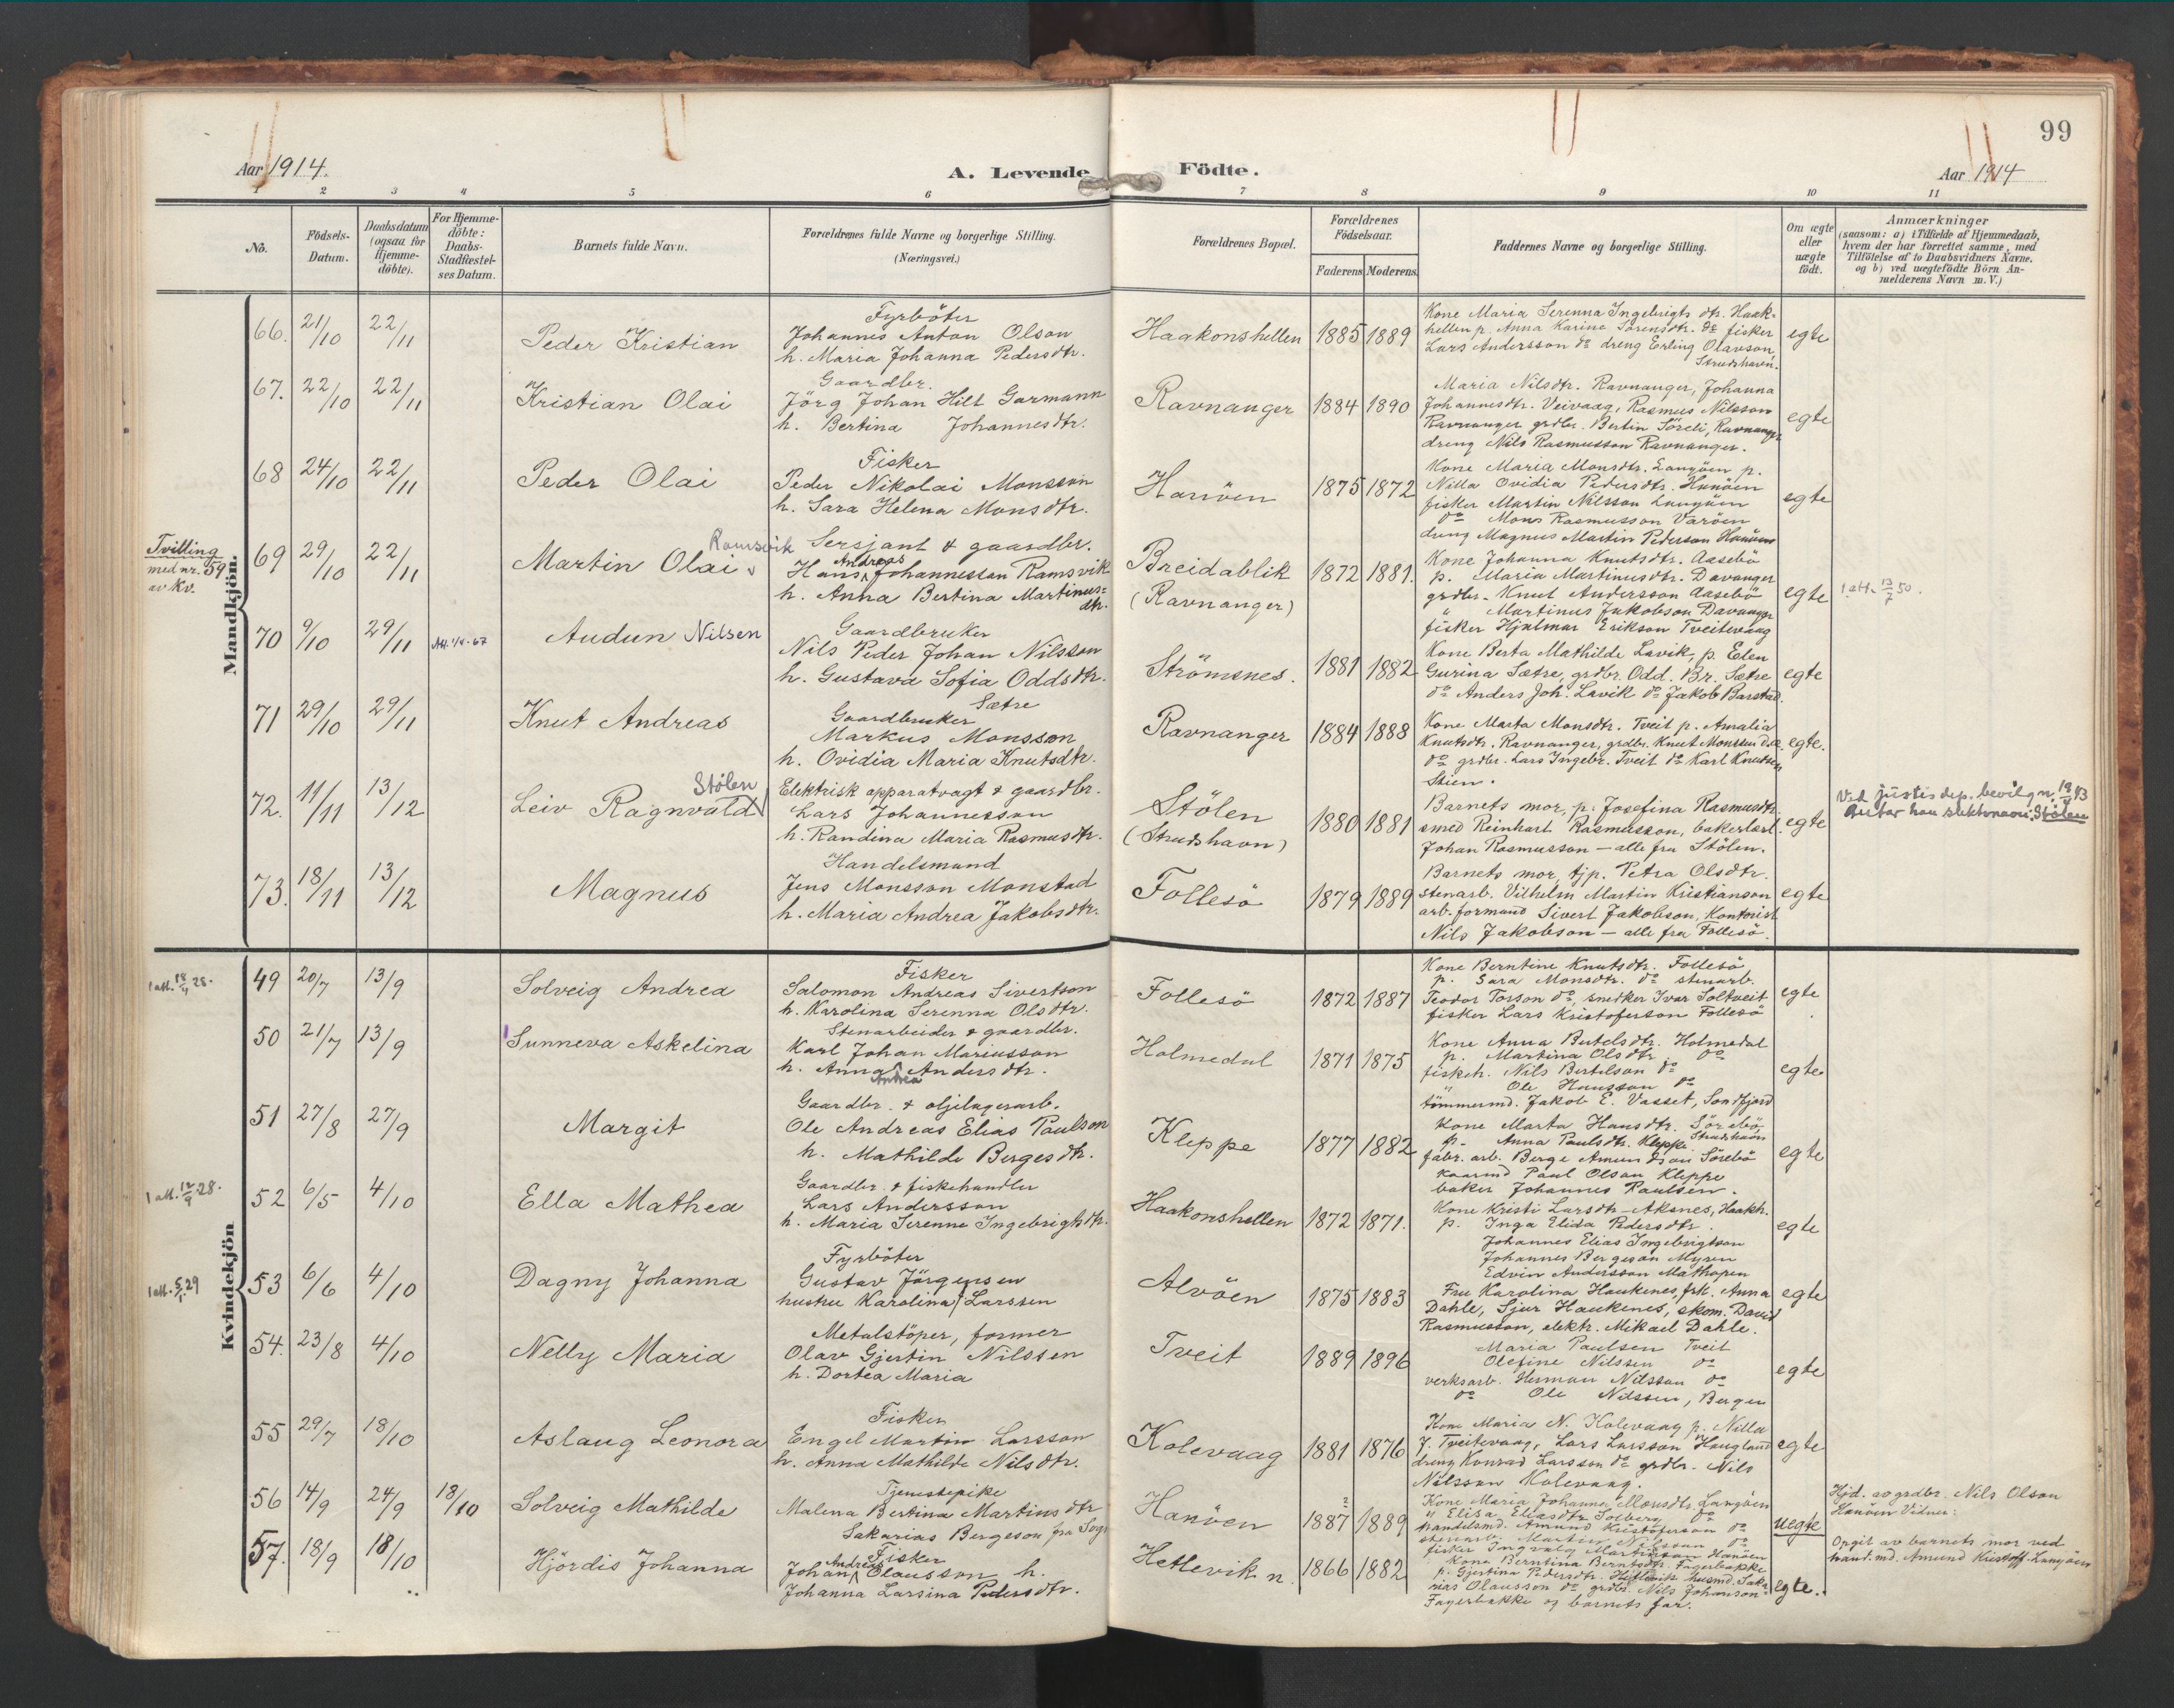 99
Aar 1914.
A. Levende Födte.
Aar 1914
1 2 3 4 5 6 7 8 9 10 11
No.
Födsels-Datum.
Daabsdatum (ogsaa for Hjemme-döbte).
For Hjemme-döbte: Daabs-Stadfæstel-ses Datum.
Barnets fulde Navn.
Forældrenes fulde Navne og borgerlige Stilling.
(Næringsvei.)
Forældrenes Bopæl.
Forældrenes Födselsaar.
Faderens Moderens
Faddernes Navne og borgerlige Stilling.
Om ægte eller uægte födt.
Anmærkninger
(saasom: a) i Tilfælde af Hjemmedaab,
hvem der har forrettet samme, med
Tilföielse af to Daabsvidners Navne,
og b) ved uægtefödte Börn An-
melderens Navn m. V.)
Mandkjön.
66. 21/10 22/11 Peder Kristian
Fyrböter
Johannes Anton Olson
h. Maria Johanna Pedersdtr.
Haakonshellen 1885 1889
Kone Maria Serenna Ingebrigts dtr. Haak-
hellen p. Anna Karine Sörensdtr. do fisker
Lars Andersson do dreng Erling Olavson,
Strudshavn.
egte
67. 22/10 22/11 Kristian Olai
Gaardbr.
Jörg Johan Hilt Garmann
h. Bertina Johannesdtr.
Ravnanger 1884 1890
Maria Nilsdtr. Ravnanger, Johanna
Johannesdtr. Veivaag, Rasmus Nilsson
Ravnanger grdbr. Bertin Söreli, Ravnanger
dreng Nils Rasmusson Ravnanger.
egte
68 24/10 22/11 Peder Olai
Fisker
Peder Nikolai Monsson
h. Sara Helena Monsdtr.
Hanöen 1875 1872
Kone Maria Monsdtr. Langöen p.
Nilla Ovidia Pedersdtr. Hanöen
fisker Martin Nilsson Langöen
do Mons Rasmusson Varöen
dreng Magnus Martin Pederson Hanöen
egte
Tvilling
med nr. 59
av Kv.
69 29/10 22/11 Martin Olai Ramsvik
Sersjant & gaardbr.
Hans Andreas Johannesson Ramsvik
h. Anna Bertina Martinus=
dtr.
Breidablik
(Ravnanger)
1872 1881.
Kone Johanna Knutsdtr. Aasebö
p. Maria Martinusdtr. Davanger
grdbr. Knut Andersson Aasebö
" Martinus Jakobson Davanger
fisker Hjalmar Erikson Tveitevaag
egte
1 att. 13/7 50.
70 9/10 29/11 Att. 1/4-67 Audun Nilsen
Gaardbruker
Nils Peder Johan Nilsson
h. Gustava Sofia Oddsdtr.
Sætre
Strömsnes. 1881 1882
Kone Berta Mathilde Lavik, p. Elen
Gurina Sætre, grdbr. Odd. Br. Sætre
do Anders Joh. Lavik do Jakob Barstad.
egte
71 29/10 29/11 Knut Andreas
Gaardbruker
Markus Monsson
h. Ovidia Maria Knutsdtr.
Ravnanger 1884 1888
Kone Marta Monsdtr. Tveit p. Amalia
Knutsdtr. Ravnanger, grdbr. Knut Monssen
do grdbr. Lars Ingebr. Tveit do Karl Knutsen
Skien.
egte.
72. 11/11 13/12 Leiv Ragnvald Stölen
Elektrisk apparatvagt & gaardbr.
Lars Johannesson
h. Randina Maria Rasmusdtr.
Stölen
(Strudshavn)
1880 1881
Barnets mor, p. Josefina Rasmusdtr.
smed Reinhart Rasmusson, bakerlærl.
Johan Rasmusson — alle fra Stölen.
egte
Ved justisdep. bevilgn. 43
antar han slektsnavn: Stölen
73. 18/11 13/12 Magnus
Handelsmand
Jens Monsson Monstad
h. Maria Andrea Jakobsdtr.
Follesö 1879 1889
Barnets mor, tjp. Petra Olsdtr.
stenarb. Vilhelm Martin Kristianson
arb.formand Sivert Jakobson, Kontorist
Nils Jakobson — alle fra Follesö.
egte
Kvindekjön
1 att. 18/4 28.
49 20/7 13/9 Solveig Andrea
Fisker
Salomon Andreas Sivertson
h. Karolina Serenna Olsdtr.
Follesö 1872 1887
Kone Berntine Knutsdtr. Follesö
p. Sara Monsdtr. do stenarb.
Teodor Torson do, snedker Ivar Soltveit
fisker Lars Kristoferson Follesö
egte
50 21/7 13/9 Sunneva Askelina
Stenarbeider & gaardbr.
Karl Johan Mariusson
h. Anna Andrea Andersdtr.
Holmedal 1871 1875
Kone Anna Bertelsdtr. Holmedal
p. Martina Olsdtr. do
fiskeh. Nils Bertelson do
" Ole Hansson do
tömmermd. Jakob E. Vasset, Sondfjord
egte
51 27/8 27/9 Margit
Gaardbr. & oljelagerarb.
Ole Andreas Elias Paulson
h. Mathilde Bergesdtr.
Kleppe 1877 1882
Kone Marta Hansdtr. Sörebö,
Strudshavn
p. Anna Paulsdtr. Kleppe
fabr. arb. Berge Amundson Sörebö
kaarmd Paul Olson Kleppe
baker Johannes Paulsen.
egte
1 att. 12/9 28.
52 6/5 4/10 Ella Mathea
Gaardbr. & fiskehandler
Lars Andersson
h. Maria Serenne Ingebrigtsdtr.
Haakonshellen 1872 1871.
Kone Kristi Larsdtr. Aksnes, Haakh.
p. Inga Elida Pedersdtr.
Johannes Elias Ingebrigtson
Johannes Bergeson Myren
Edvin Andersson Mathopen
egte
1 att. 5/1 29
53 6/6 4/10 Dagny Johanna
Fyrböter
Gustav Jörgensen
hustru Karolina Larssen
Alvöen 1875 1883
Fru Karolina Haukenes, frk. Anna
Dahle, Sjur Haukenes, skom. David
Rasmusson, elektr. Mikael Dahle.
egte
54. 23/8 4/10 Nelly Maria
Metalstöper, former
Olav Gjertin Nilssen
h. Dortea Maria
Tveit 1889 1896
Maria Paulsen Tveit
Olefine Nilssen do
verksarb. Herman Nilsson do
do Ole Nilssen, Bergen
egte
55 29/7 18/10 Aslaug Leonora
Fisker
Engel Martin Larsson
h. Anna Mathilde Nilsdtr.
Kolevaag 1881 1876
Kone Maria N. Kolevaag p. Nilla
J. Tveitevaag, Lars Larsson Haugland
dreng Konrad Larsson do grdbr. Nils
Nilsson Kolevaag.
egte
56 14/9 24/9 18/10 Solveig Mathilde
Tjenestepike
Malena Bertina Martinsdtr
Sakarias Bergeson, fra Sogn
Hanöen 1887 1889
Kone Maria Johanna Monsdtr. Langöen
" Elisa Eliasdtr. Solberg do
handelsmd. Amund Kristoferson do
stenarb. Martin Nilsson do
fisker Ingvald Martinson Hanöen
uegte
Hjd. av grdbr. Nils Olson
Hanöen Vitner:
Opgit av barnets mor ved
hand.md. Amund Kristoff. Langöen
57. 18/9 18/10 Hjördis Johanna
Fisker
Johan Andreas Olausson h.
Johanna Larsina Pedersdtr.
Hetlevik n. 1866 1882
Kone Berntina Berntsdtr. Fagerbakke
p. Gjertina Pedersdtr. Hetlevik husmd. Saka-
rias Olausson do grdbr. Nils Johanson
Fagerbakke og barnets far.
egte.